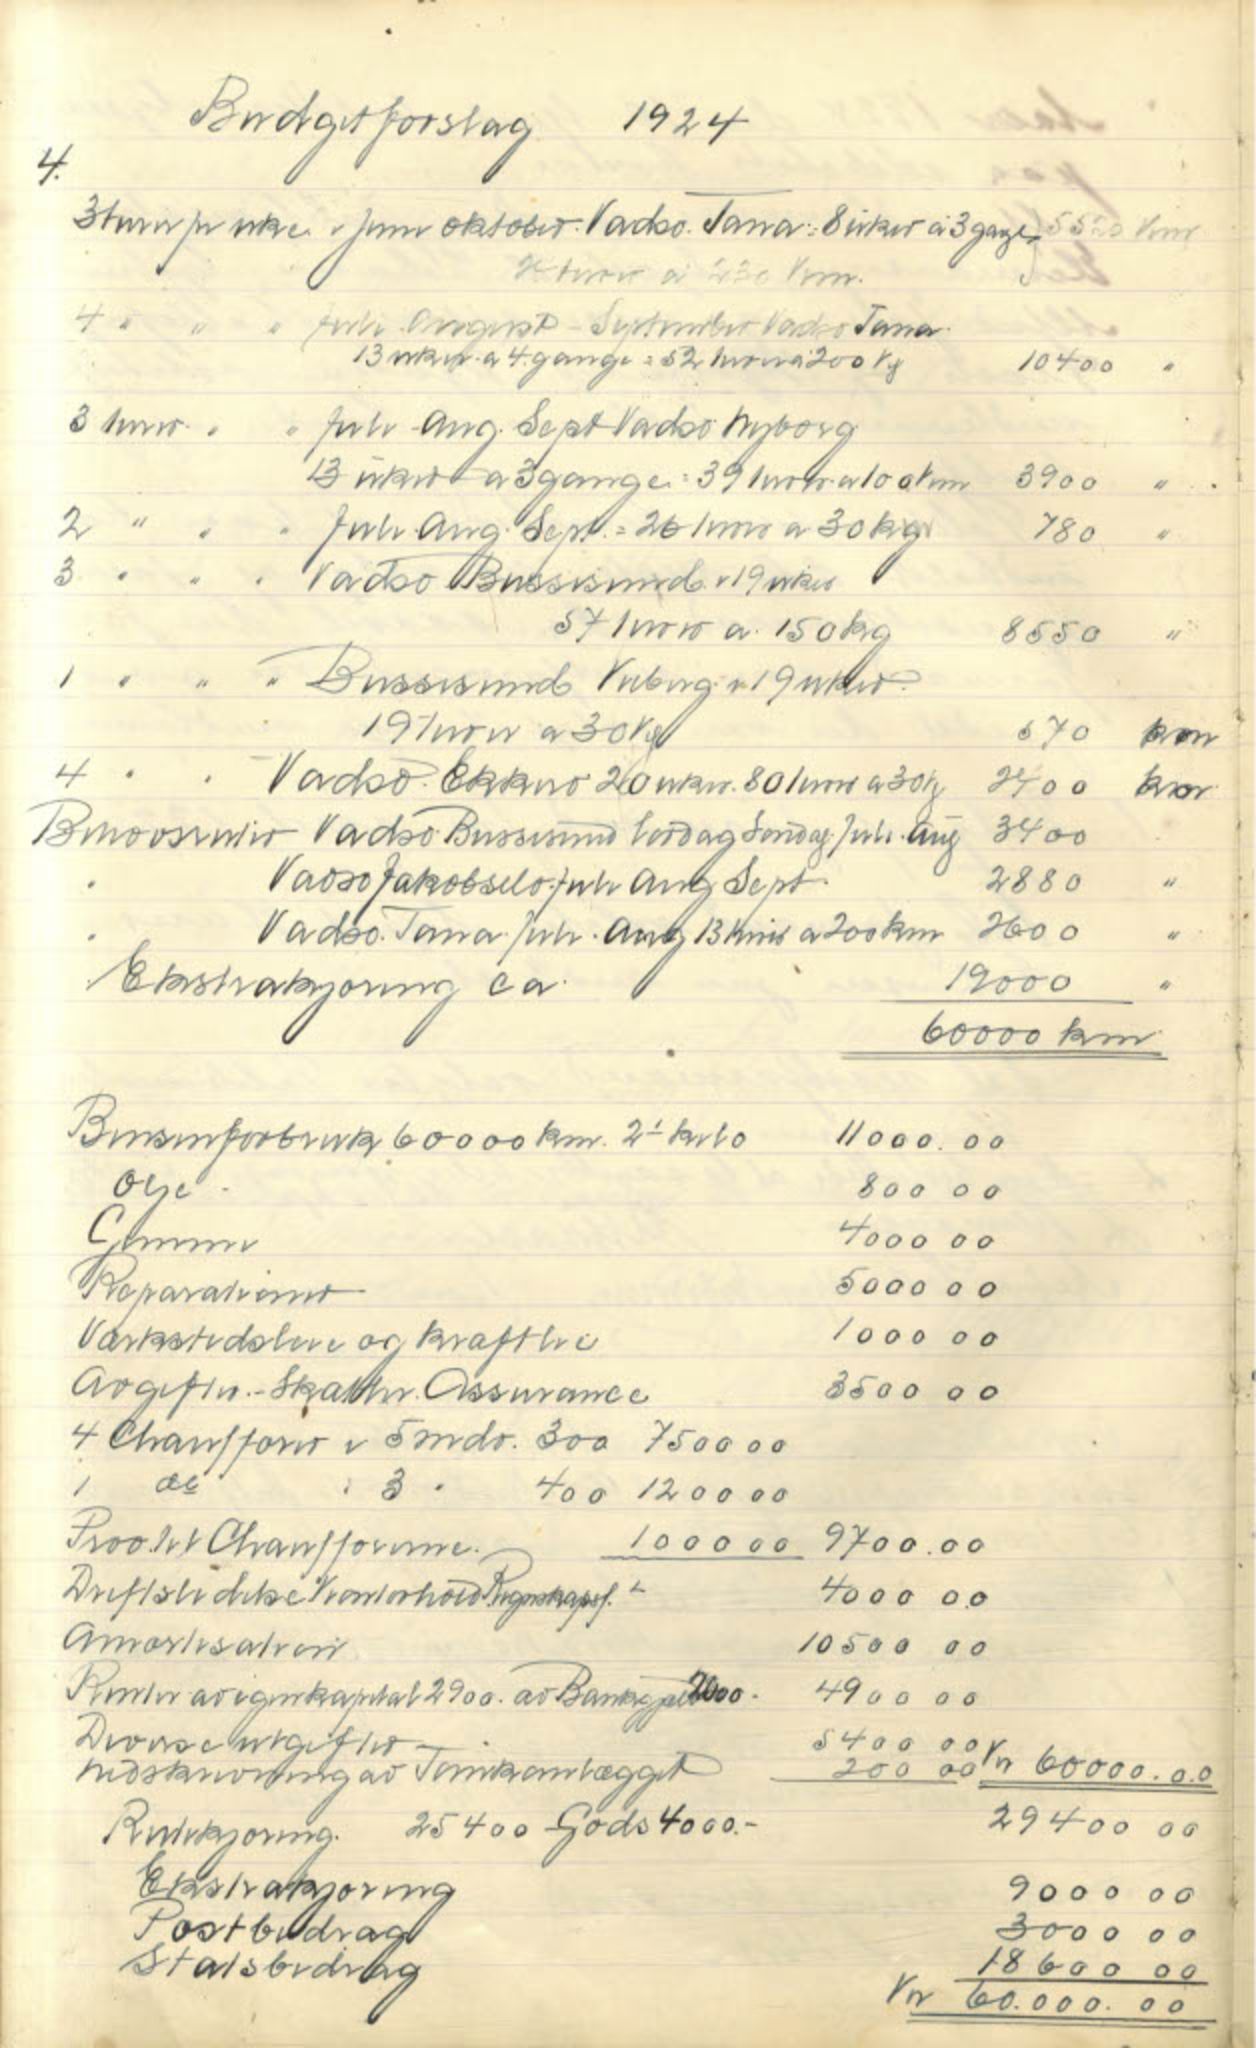 Budgetforslag 1924
4.
3 turer pr uke i Juni oktober. Vadsø. Tana = 8 uker á 3 gange 5520 km
24 turer á 230 km.
4 " " " Juli August - September Vadsø Tana
13 uker a 4 gange = 52 turer a 200 kg 10400 "
3 turer " " Juli Aug. Sept Vadsø Nyborg
13 uker a 3 gange = 39 turer a 100 km 3900 "
2 " " " Juli Aug. Sept. = 26 turer a 30 kg 780 "
3 " " " Vadsø Bussesund i 19 uker
57 turer a 150 kg 8550 "
1 " " " Bussesund Kiberg i 19 uker
19 turer a 30 kg 570 km
4 " " Vadsø Ekkerø 20 uker. 80 turer a 30 kg 2400 km
Vadsø Bussesund Lørdag Søndag Juli. Aug 3400
" Vadsø Jakobselv Juli Aug Sept 2880 "
" Vadsø. Tana Juli. Aug 13 turer a 200 km 2600 "
Ekstrakjøring ca. 19000 "
60000 km
Bensinforbruk 60000 km. kilo 11000.00
Olje - 800 00
Gummi 4000 00
Reparationer 5000 00
Værkstedsleie og kraftleie 1000 00
Avgifter - Skatter. Assurance 3500 00
4 Chauffører i 5 mdr. 300 7500 00
1 do i 3 " 400 1200 00
Prov. til Chaufførerne. 1000 00 9700.00
Driftsledelse Kontorhold Regnskapsf. 4000 00
Amortisation 10500 00
Renter av egenkapital 2900. av Bankgjeld 2000 - 4900 00
Diverse utgifter 5400 00
Nedskrivning av Tankanlægget 200 00 Kr 60000.00
Rutekjøring. 25400 Gods 4000.- 29400 00
Ekstrakjøring 9000 00
Postbidrag 3000 00
Statsbidrag 18600 00
Kr 60.000.00